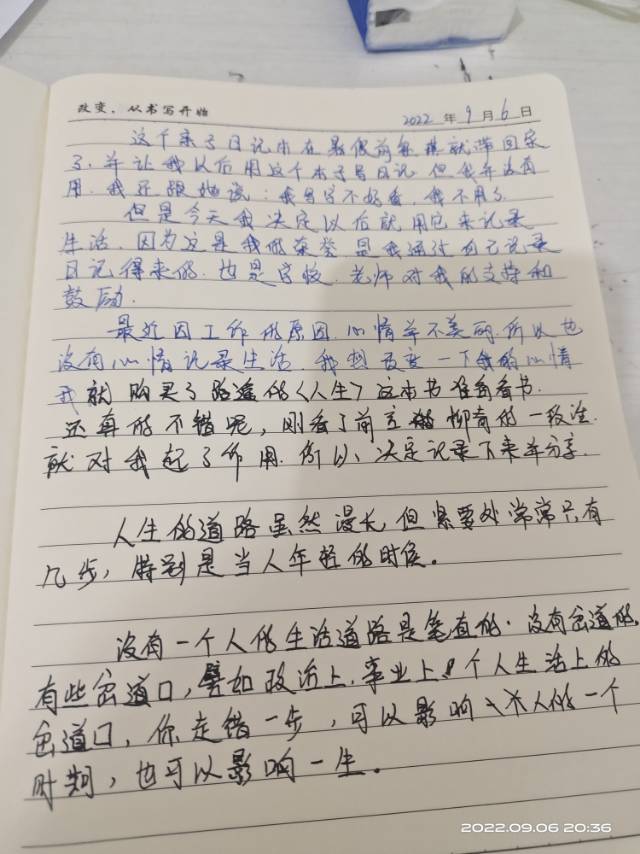 改变，从书写开始
2022 年 9 月 6 日
这个本子日记本在暑假前就带回家
了，并让我以后用这个本子写日记 但我并没有
用，我还跟她说：我写字不好看，我不用了
但是今天我决定以后就用它来记录
生活，因为这是我的荣誉 是我通过自己记录
日记得来的，也是学校、老师对我的支持和
鼓励．
最近因工作的原因，心情并不美丽，所以也
没有心情记录生活．我想改变一下我的心情
我就购买了路遥的《人生》这本书 准备看书．
还真的不错呢，刚看了前言 柳青的一段话．
就对我起了作用．所以、决定记录下来并分享．
人生的道路虽然漫长，但紧要处常常只有
几步，特别是当人年轻的时候。
没有一个人的生活道路是笔直的．没有岔道的．
有些岔道口，譬如政治上，事业上，个人生活上的
岔道口，你走错一步，可以影响人的一个
时期，也可以影响一生．
2022.09.06 20:36